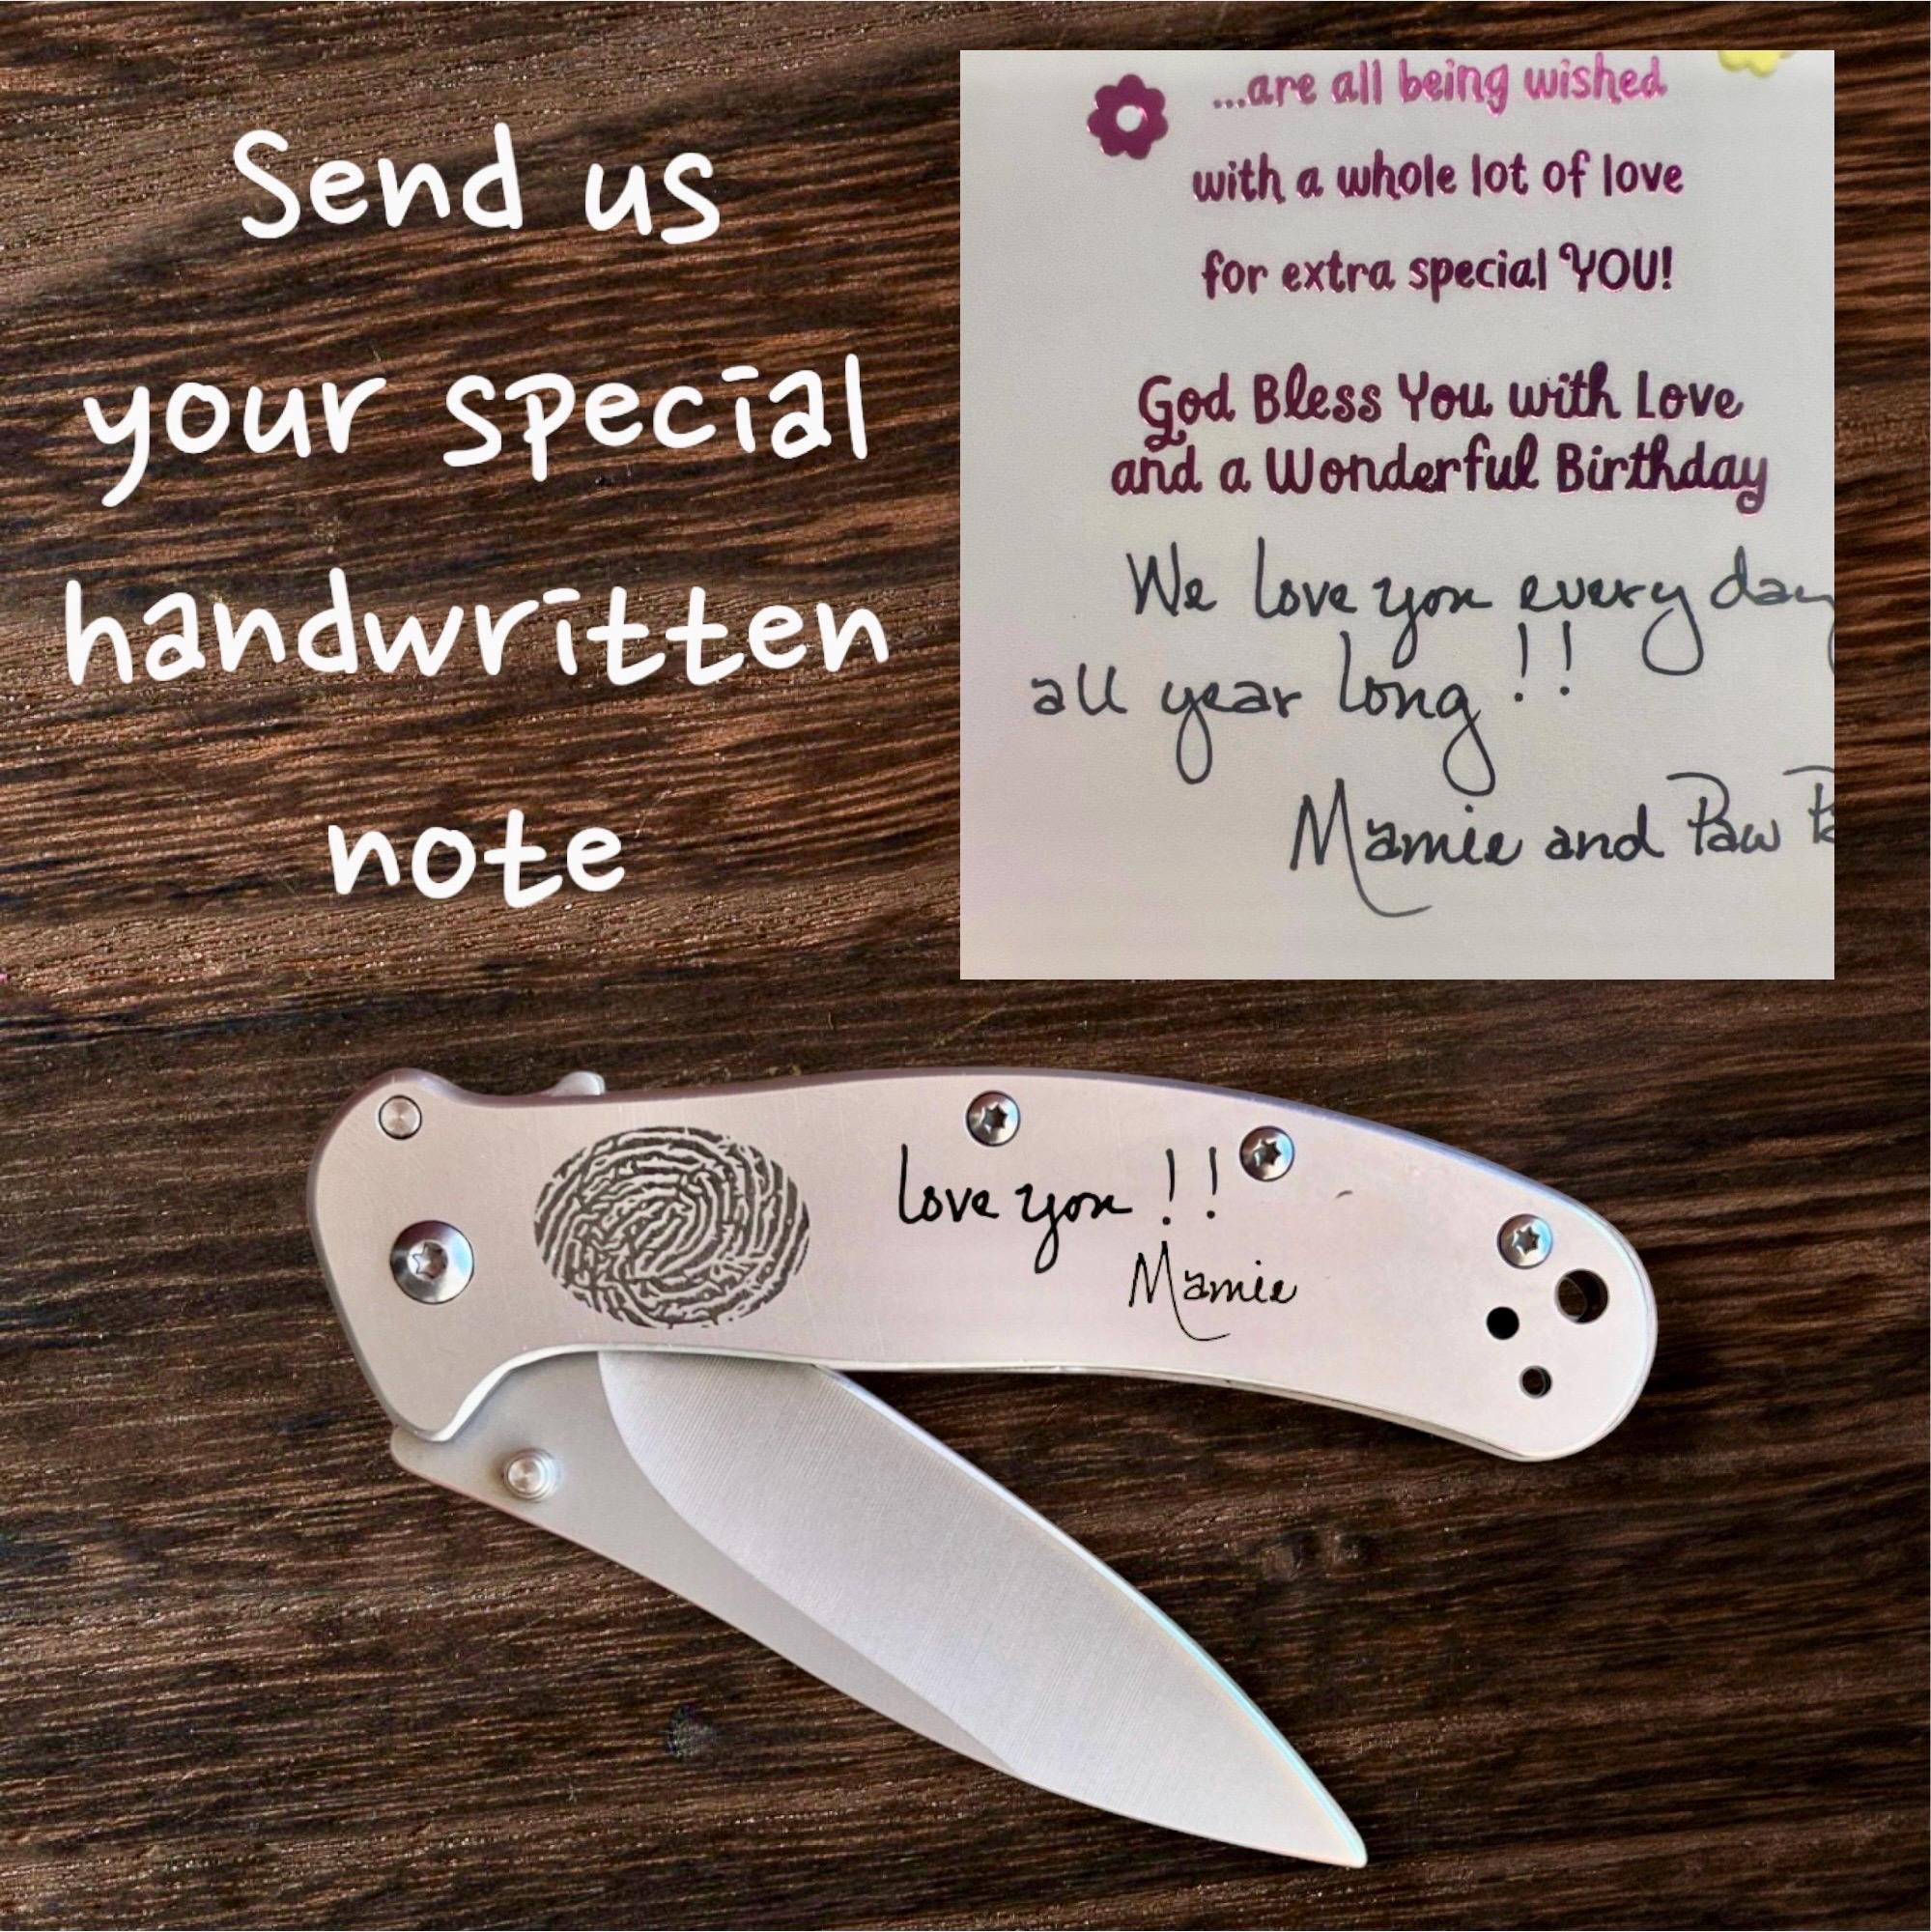 Send us
your special
handwritten
note
...are all being wished
with a whole lot of love
for extra special YOU!
God Bless You with Love
and a Wonderful Birthday
We love you every day
all year long!!
Mamie and Paw
love you!!
Mamie